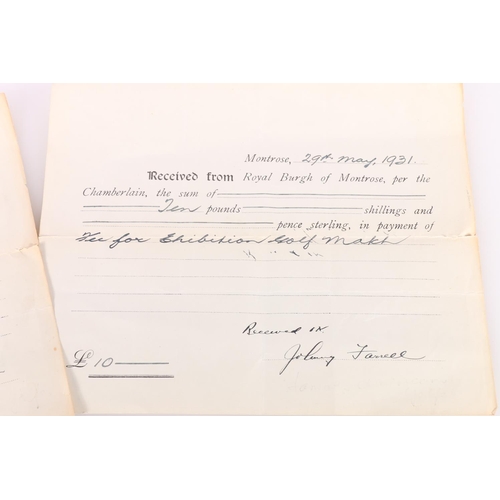 Montrose, 29th May, 1931.
Received from Royal Burgh of Montrose, per the
Chamberlain, the sum of
Ten pounds shillings and
pence sterling, in payment of
Fee for Ehibition Golf Makh
Received
£ 10 Johnny Farrell